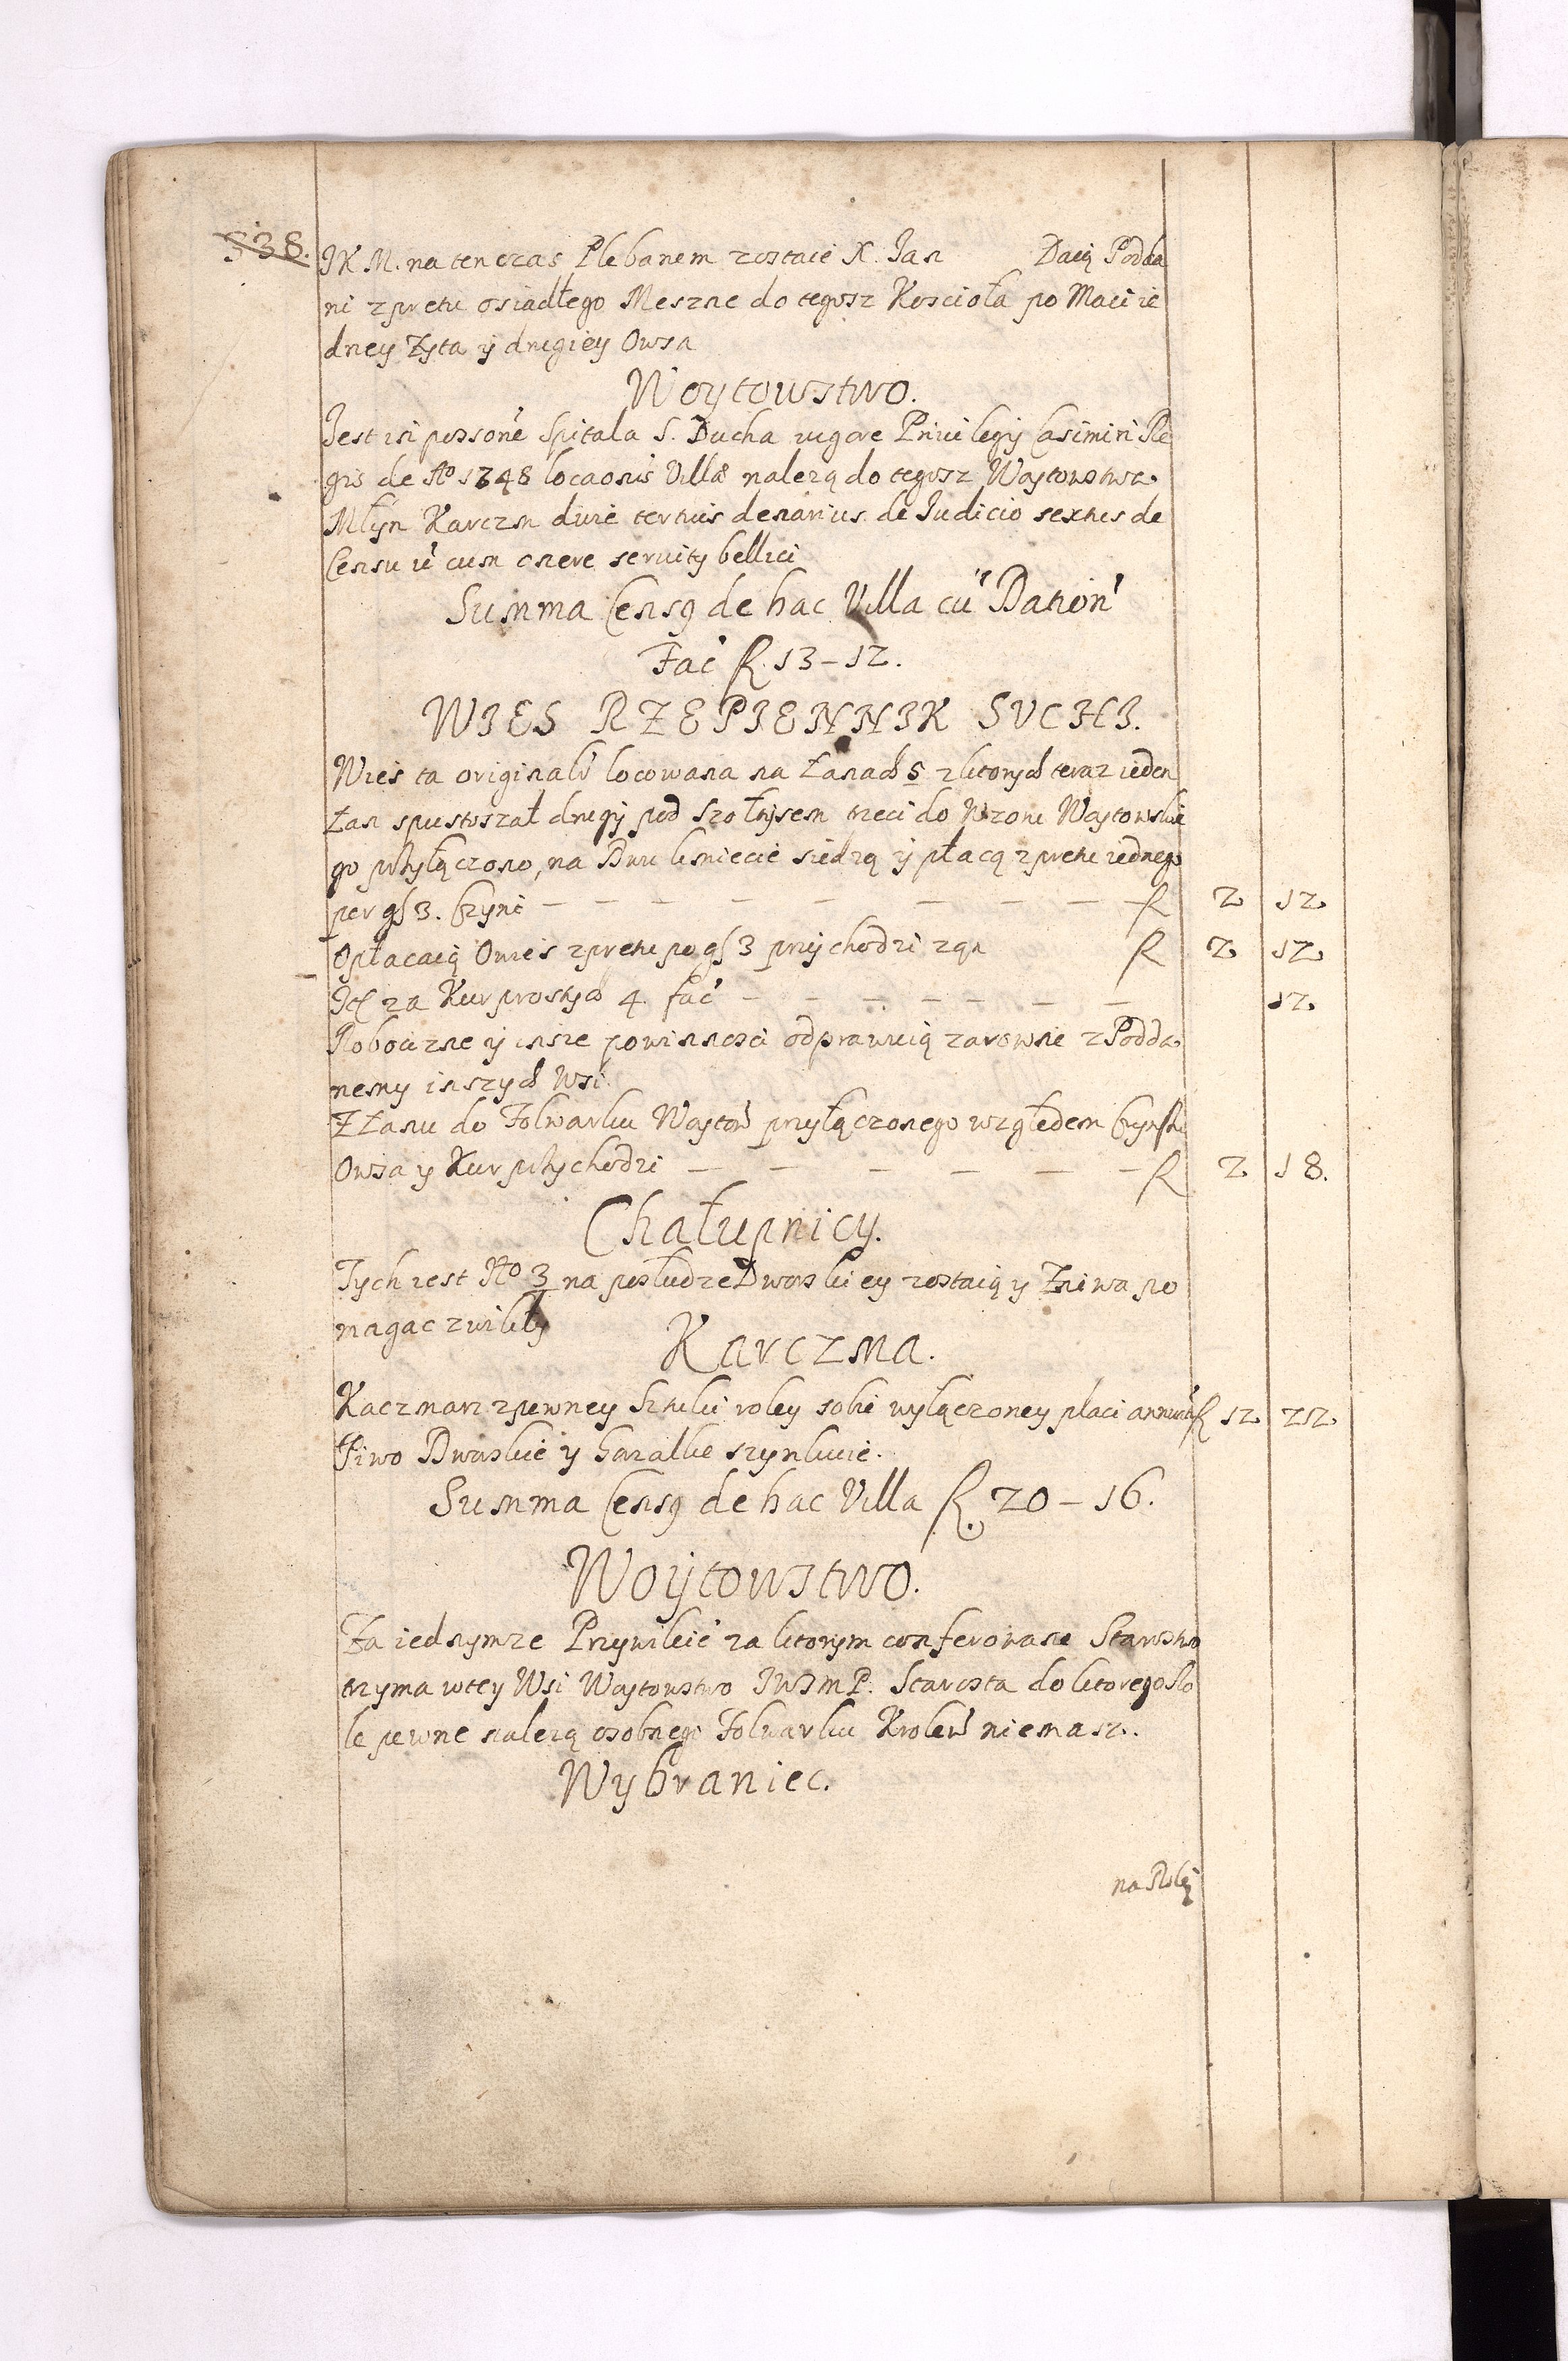 538.
JKM. na ten czas Plebanem zostaie X. Jan Daią Podda
ni z prętu osiadłego Meszne do tegosz Koscioła po Macie ie
dney Zyta y drugiey Owsa
Woytowstwo.
Jest in possone Spitala S. Ducha vigore Privilegij Casimiri Re
gis de Ao 1348 locaonis Villae nalezą do tegosz Woytowstwa
Młyn Karczm dwie tertius denarius de Judicio sextus de
Censu ie cum onere servitij bellici
Summa Censq de hac Villa cu Dation
Fac R. 13 – 12.
WIES RZEPIENNIK SUCHI.
Wies ta originalr locowana na Łanach 5 z ktorych teraz ieden
Łan spustoszał drugi pod Szołtysem trzeci do Wzoru Woytowskie
go przyłączono, na Dwu kmiecie siedzą y płacą z prętu iednego
per gs 3. Czyni – – – – – – – – – R 2 12
Opłacaią Owies z prętu po gs 3 przychodzi zgn R 2 12
It za Kur prostych 4. fac – – – – – – – 12
Robocizne y insze powinnosci odprawuią zarowne z Podda
nemy inszych Wsi.
Z Łanu do Folwarku Woytow przyłączonego względem Czynsu
Owsa y Kur przychodzi – – – – – – R 2 18.
Chałupnicy.
Tych iest No 3 na posłudze Dworskiey zostaią y Zniwa po
magac zwikli
Karczma.
Kaczmarz z pewney Sztuki roley sobie wyłączoney placi annuatī R 12 22
Piwo Dworskie y Gorzalke szynkuie.
Summa Censq de hac Villa R. 20 – 16.
Woytowstwo.
Za iednymze Przywileie za ktorym conferowane Starostwo
trzyma w tey Wsi Woytowstwo JWJmP. Starosta do ktorego Ro
le pewne nalezą osobnego Folwarku Krolew niemasz.
Wybraniec.
na Roley